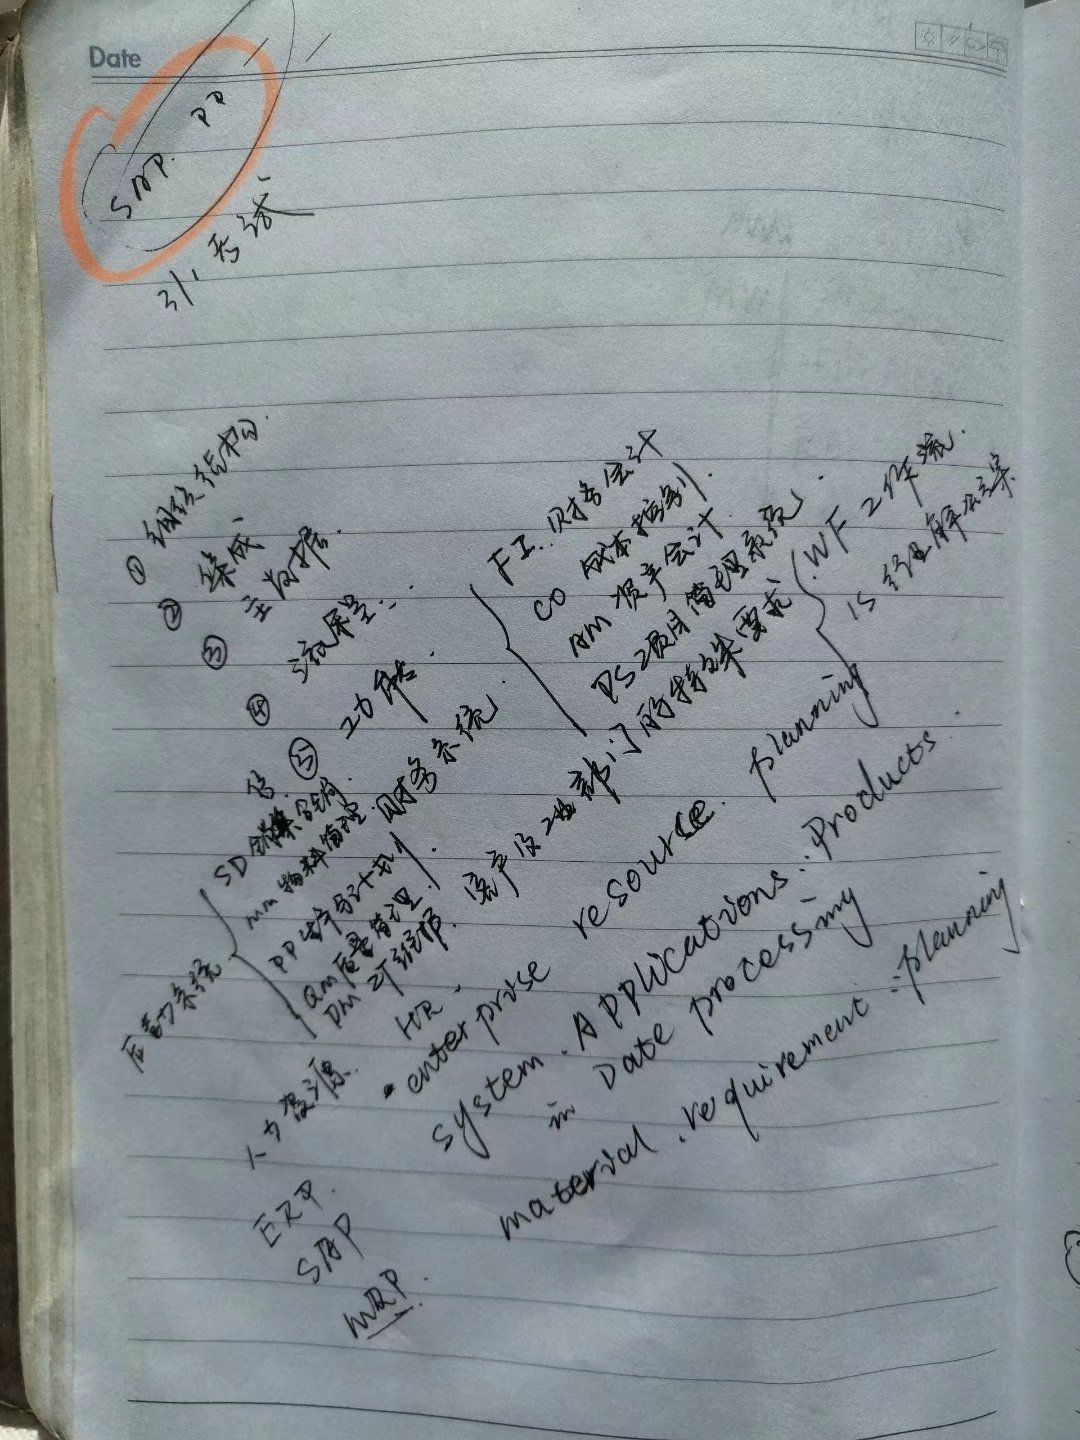 Date
SAP. PP
3/1 考试
① 组织结构.
② 集成
③ 主数据.
④ 流程
⑤ 功能.
后勤系统
SD 销售
MM 物料管理
PP 生产与计划
QM 质量管理
PM 工厂维护
财务系统
FI. 财务会计
CO 成本控制.
AM 资产会计
PS 项目管理系统.
人力资源 HR.
客户及工业部门的特殊要求
WF 工作流.
IS 行业解决方案
ERP. enterprise resource. planning
SAP system. Applications. Products.
in Date processing
MRP. material. requirement. planning